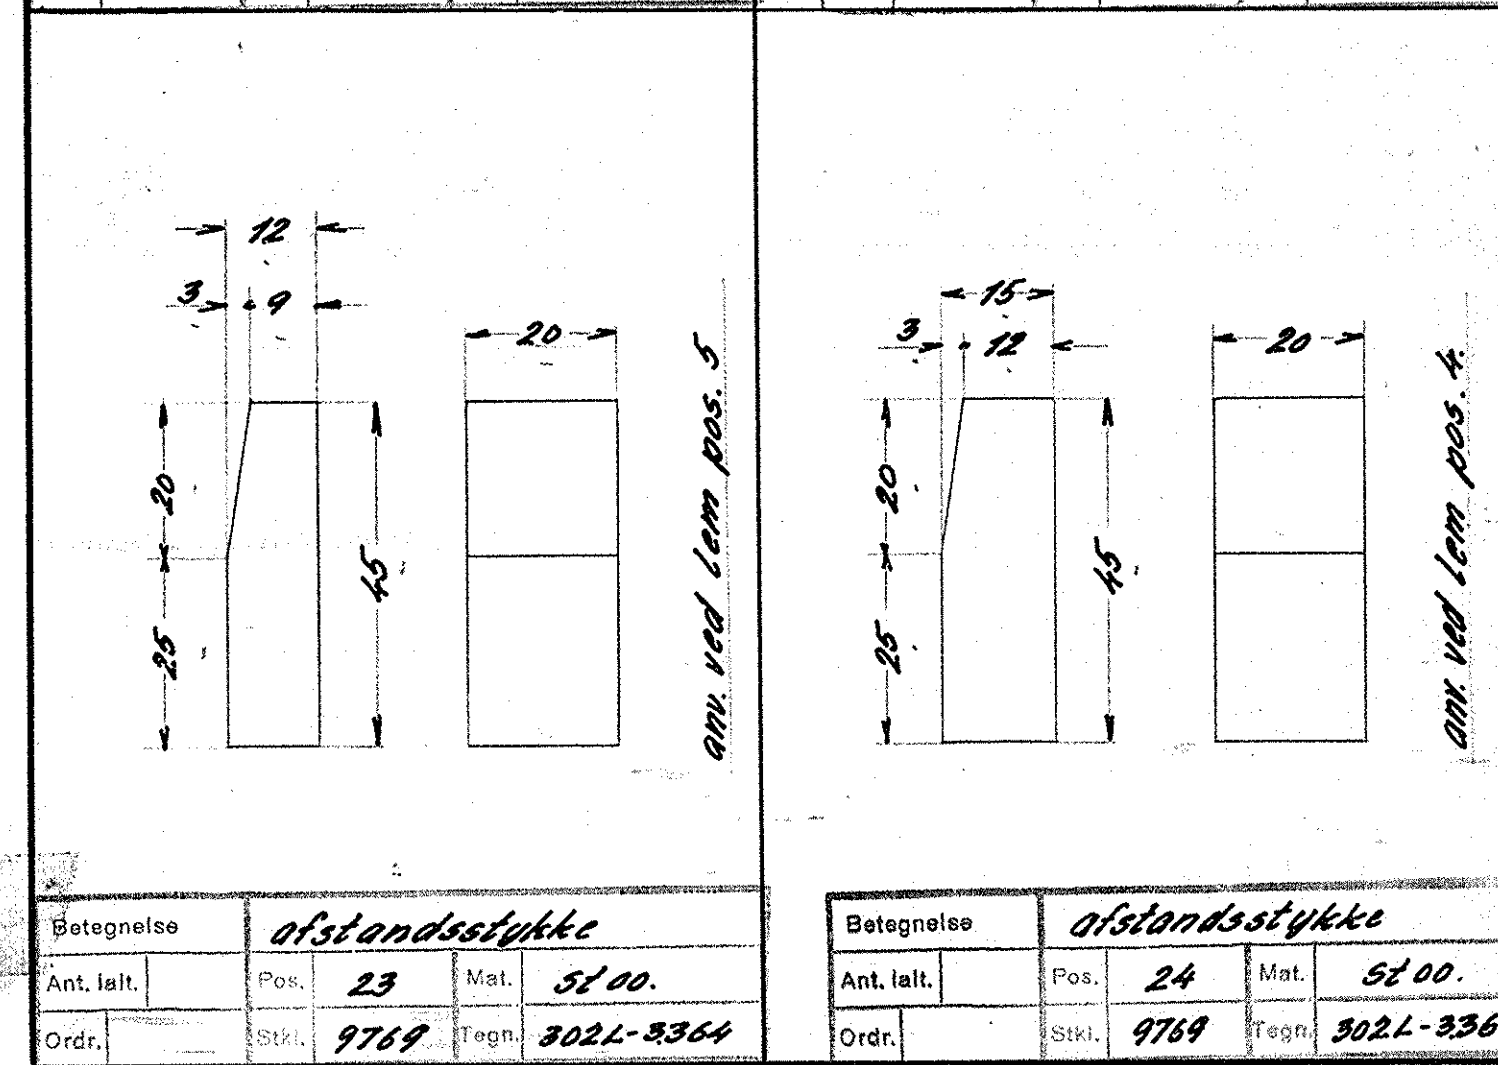 12
3 9
20
20
25
45
anv. ved lem pos. 5
Betegnelse afstandsstykke
Ant. ialt. Pos. 23 Mat. St 00.
Ordr. Stkl. 9769 Tegn. 302L-3364
15
3 12
20
20
25
45
anv. ved lem pos. 4.
Betegnelse afstandsstykke
Ant. ialt. Pos. 24 Mat. St 00.
Ordr. Stkl. 9769 Tegn. 302L-336